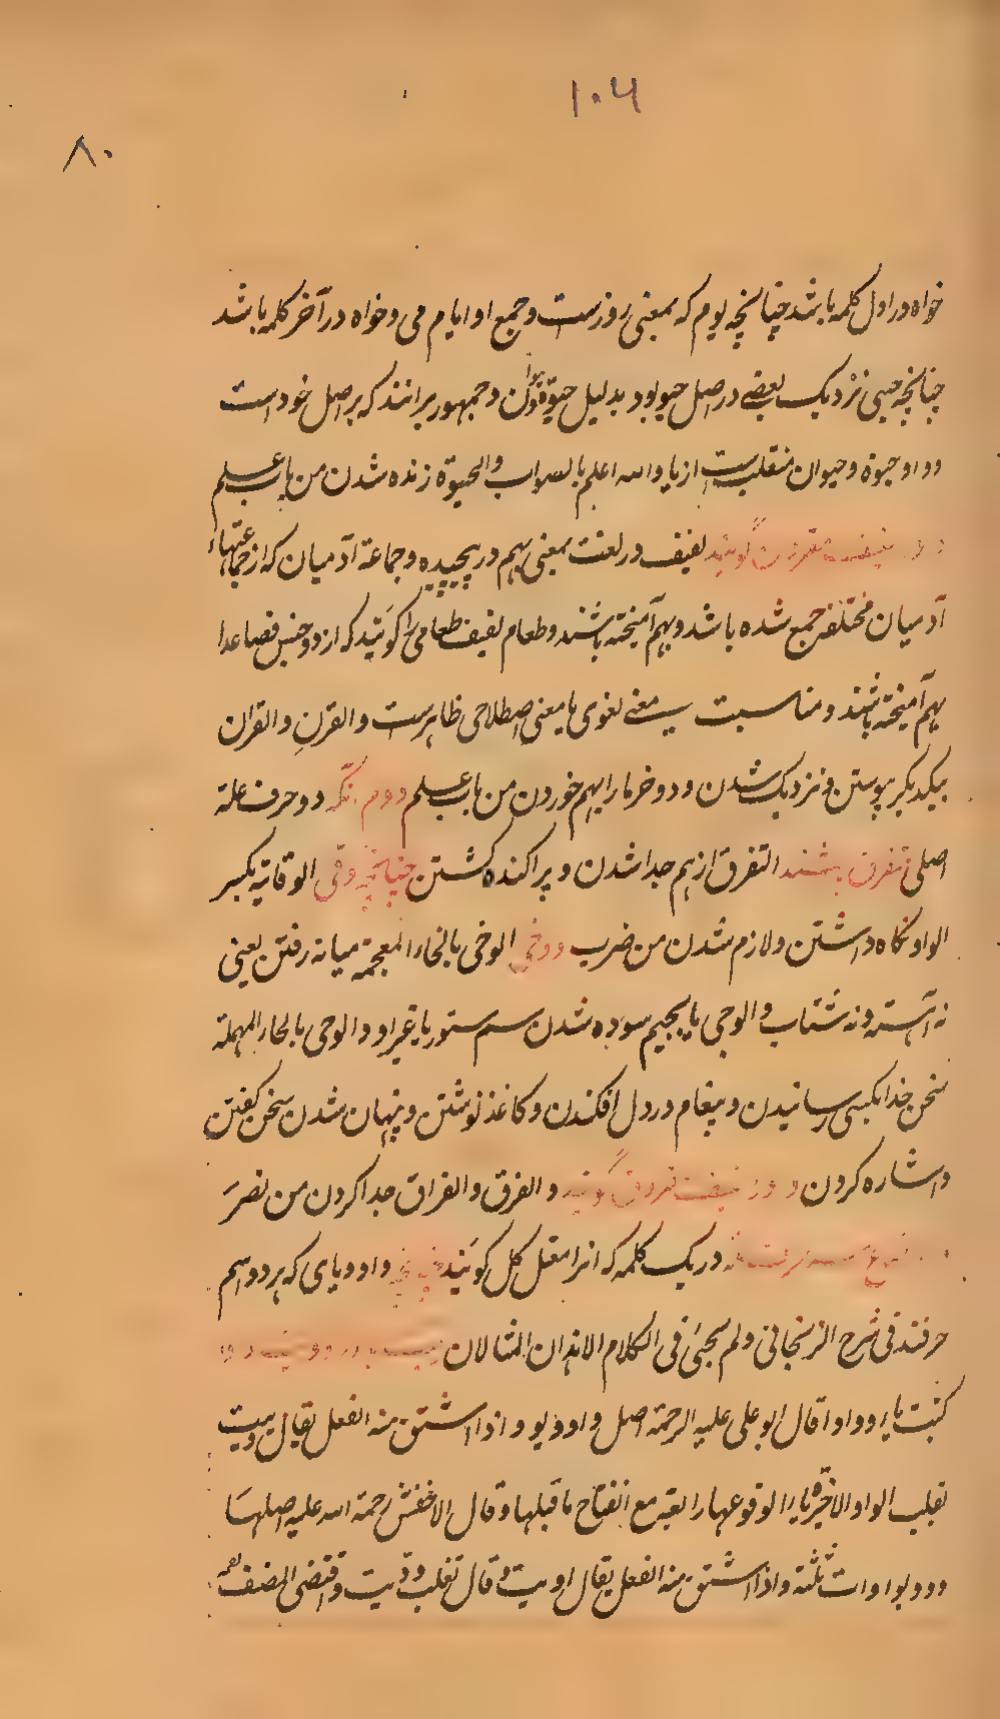 ۱۰۶
۸۰
خواه در اول کلمه باشد چنانچه یوم که بمعنی روزست و جمع او ایام می و خواه در آخر کلمه باشد
چنانچه حیی نزدیک بعضے در اصل حیو بود بدلیل حیوة و جمهور برانند که بر اصل خود است
و واو حیوة و حیوان منقلب ست از یا و الله اعلم بالصواب و الحیوة زنده شدن من باب علم
مقرون گویند لفیف در لغت بمعنی بهم در پیچیده و جماعة آدمیان که از جماعتهاء
آدمیان مختلفه جمع شده باشد و بهم آمیخته باشند و طعام لفیف طعامی را گویند که از دو جنس فصاعدا
بهم آمیخته باشند و مناسبت معنے لغوی با معنی اصطلاحی ظاهرست و القرن و القران
بیکدیگر پیوستن و نزدیک شدن و دو خرما را بهم خوردن من باب علم دوم آنکه دو حرف علة
اصلی متفرق باشند التفرق از هم جدا شدن و پراکنده گشتن چنانچه وقی الوقایة بکسر
الواو نگاه داشتن و لازم شدن من ضرب و وخی الوخی بالخاء المعجمة میانه رفتن یعنی
نه آهسته و نه شتاب و الوجی بالجیم سوده شدن سم ستور یا غیر او و الوحی بالحاء المهملة
سخن خدا بکسی رسانیدن و پیغام و در دل افکندن و کاغذ نوشتن و پنهان شدن سخن گفتن
و اشاره کردن و لفیف مفروق گویند و الفرق و الفراق جدا کردن من نصر
در یک کلمه که انرا معتل کل گویند چنانچه واو و یای که هر دو اسم
حرفند فی شرح الزنجانی و لم یجئ فی الکلام الا هذان المثالان
کتبت یاء و واوا قال ابو علی علیه الرحمة اصل واو ویو و اذا اشتق منه الفعل یقال ویّیت
تقلب الواو الاخیرة یاء لوقوعها رابعة مع انفتاح ما قبلها و قال الاخفش رحمة الله علیه اصلها
و و و بواوات ثلثة و اذا اشتق منه الفعل یقال اویت و قال تغلب وویت و اقتضی المصنف